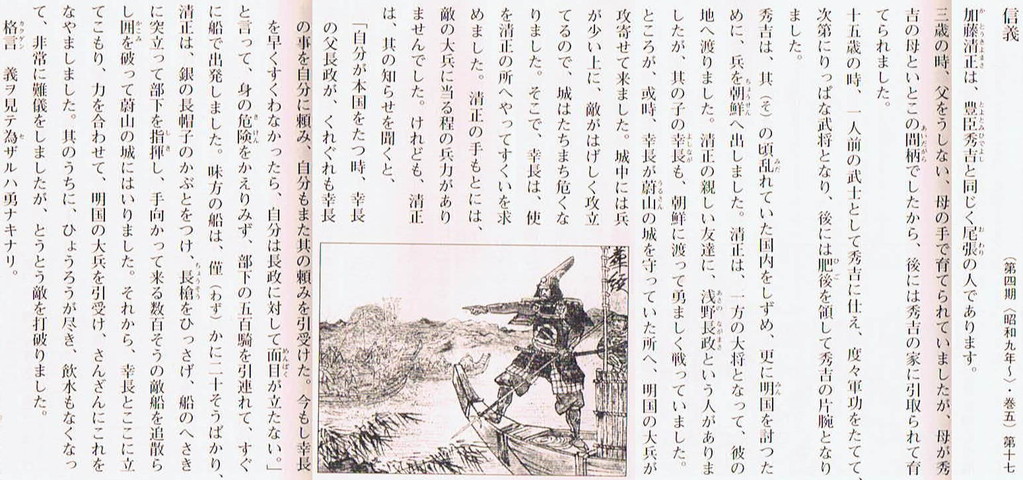 信義
(第四期〈昭和九年～〉巻五) 第十七
加藤清正は、豊臣秀吉と同じく尾張の人であります。
三歳の時、父をうしない、母の手で育てられていましたが、母が秀
吉の母といとこの間柄でしたから、後には秀吉の家に引取られて育
てられました。
十五歳の時、一人前の武士として秀吉に仕え、度々軍功をたてて、
次第にりっぱな武将となり、後には肥後を領して秀吉の片腕となり
ました。
秀吉は、其（そ）の頃乱れていた国内をしずめ、更に明国を討つた
めに、兵を朝鮮へ出しました。清正は、一方の大将となって、彼の
地へ渡りました。清正の親しい友達に、浅野長政という人がありま
したが、其の子の幸長も、朝鮮に渡って勇ましく戦っていました。
ところが、或時、幸長が蔚山の城を守っていた所へ、明国の大兵が
攻寄せて来ました。城中には兵
が少い上に、敵がはげしく攻立
てるので、城はたちまち危くな
りました。そこで、幸長は、使
を清正の所へやってすくいを求
めました。清正の手もとには、
敵の大兵に当る程の兵力があり
ませんでした。けれども、清正
は、其の知らせを聞くと、
「自分が本国をたつ時、幸長
の父長政が、くれぐれも幸長
の事を自分に頼み、自分もまた其の頼みを引受けた。今もし幸長
を早くすくわなかったら、自分は長政に対して面目が立たない。」
と言って、身の危険をかえりみず、部下の五百騎を引連れて、すぐ
に船で出発しました。味方の船は、僅（わず）かに二十そうばかり、
清正は、銀の長帽子のかぶとをつけ、長槍をひっさげ、船のへさき
に突立って部下を指揮し、手向かって来る数百そうの敵船を追散ら
し囲を破って蔚山の城にはいりました。それから、幸長とここに立
てこもり、力を合わせて、明国の大兵を引受け、さんざんにこれを
なやましました。其のうちに、ひょうろうが尽き、飲水もなくなっ
て、非常に難儀をしましたが、とうとう敵を打破りました。
格言　義ヲ見テ為ザルハ勇ナキナリ。